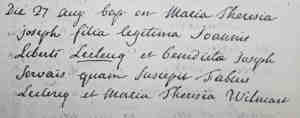 Die 27 aug bap est Maria Theresia
Joseph filia legitima Joannis
Liberti Leclercq et benedicta Joseph
Servais quam Suscepit Fabius
Leclercq et Maria Theresia Wilmart